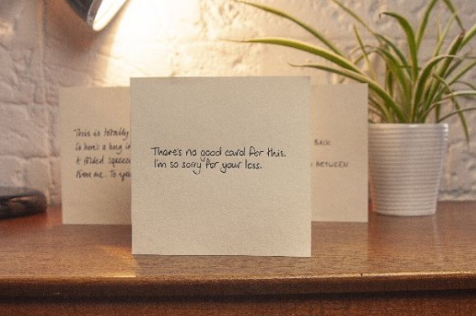 There's no good card for this.
I'm so sorry for your loss.
This is totally
So here's a hug in
& folded squeeze
from me. To you
BACK
BETWEEN